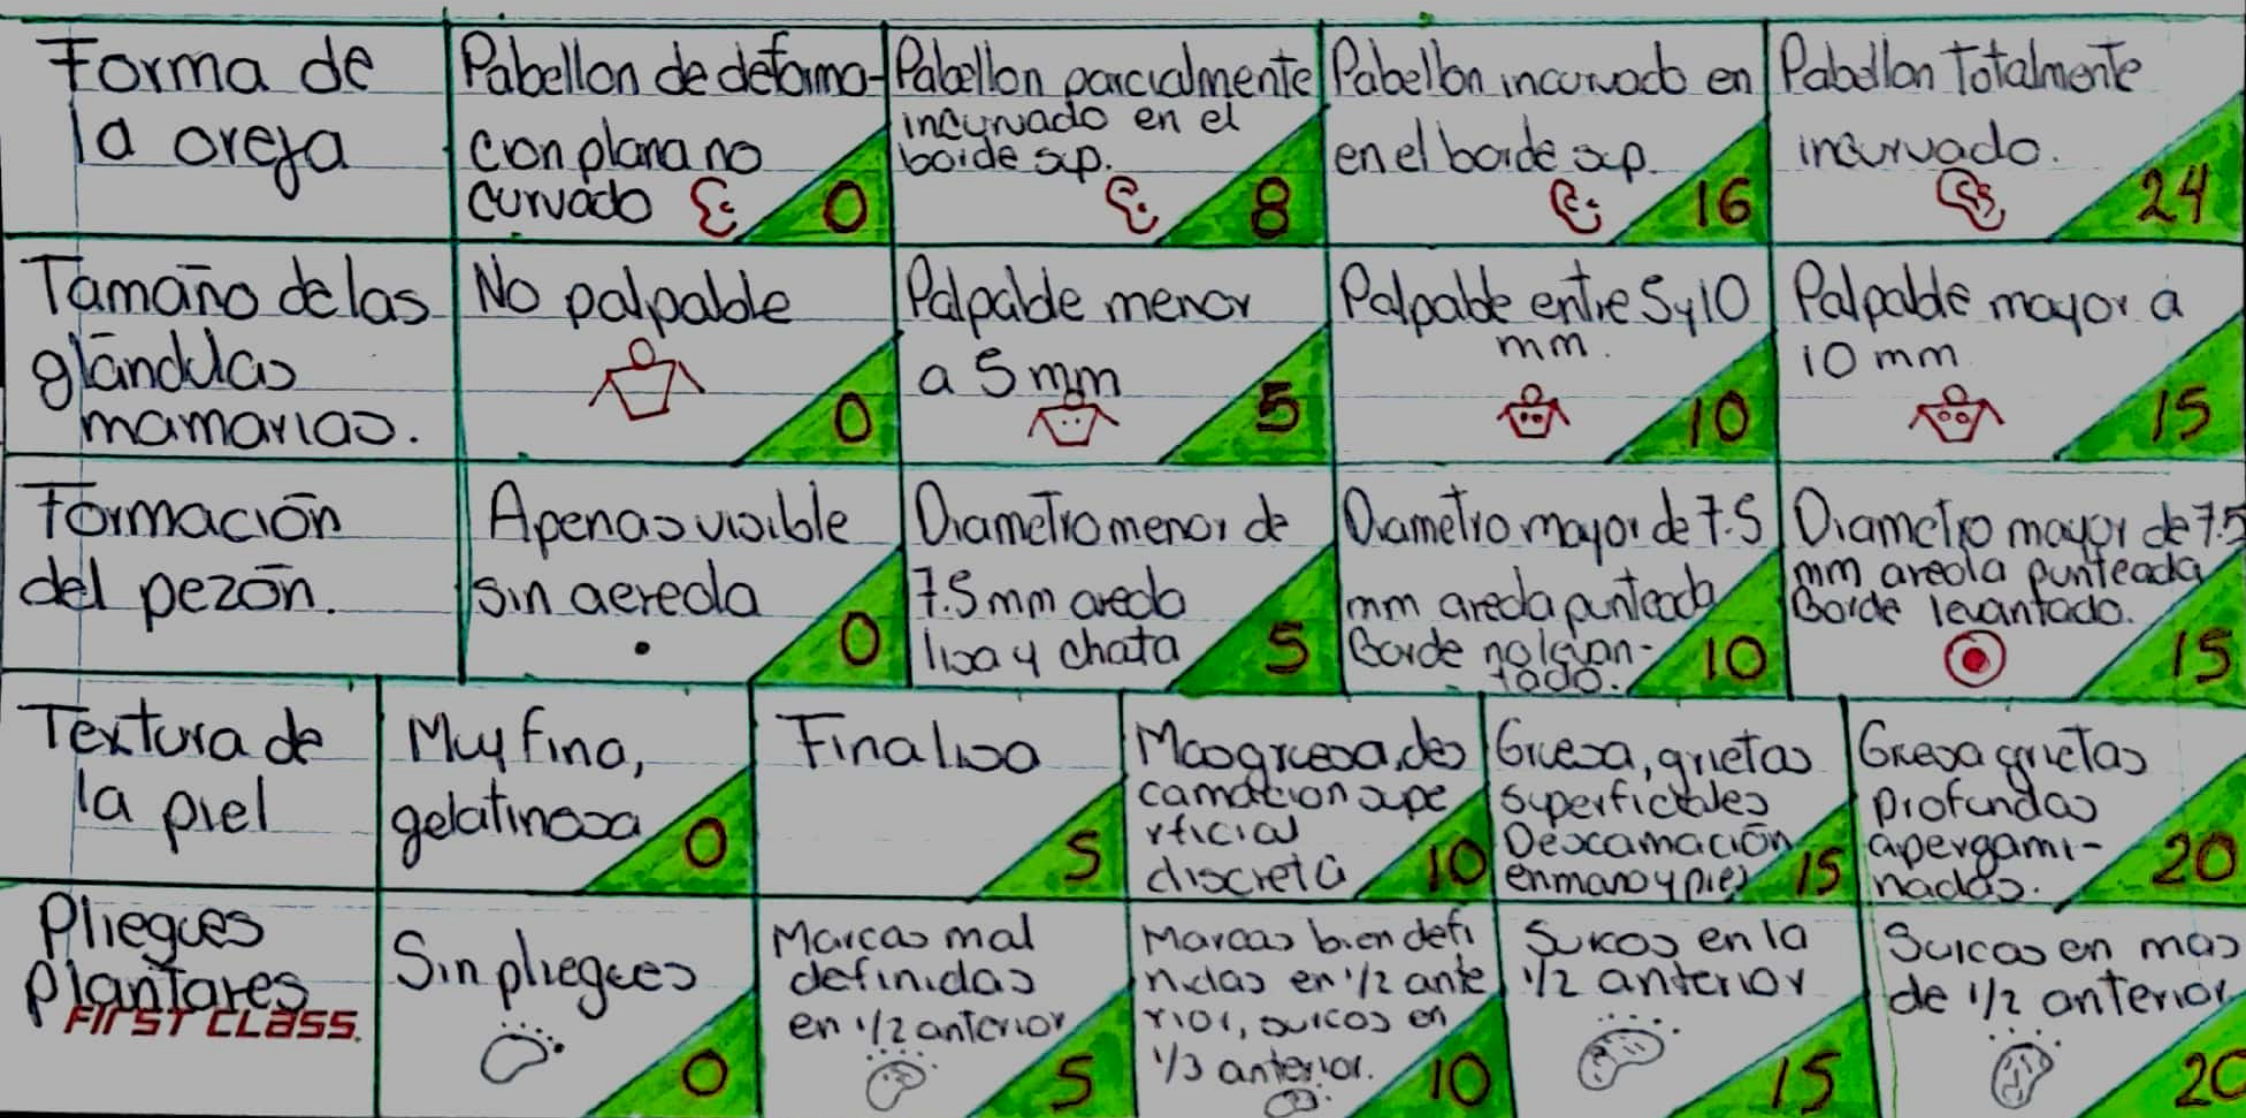 Forma de
la oreja
Pabellon de deforma-
cion plana no
curvado
0
Pabellon parcialmente
incurvado en el
borde sup.
8
Pabellon incurvado en
en el borde sup.
16
Pabellon Totalmente
incurvado.
24
Tamaño de las
glándulas
mamarias.
No palpable
0
Palpable menor
a 5 mm
5
Palpable entre 5 y 10
mm.
10
Palpable mayor a
10 mm
15
Formación
del pezón.
Apenas visible
sin aereola
0
Diametro menor de
7.5 mm areola
lisa y chata
5
Diametro mayor de 7.5
mm areola punteada
Borde no levan-
tado.
10
Diametro mayor de 7.5
mm areola punteada
Borde levantado.
15
Textura de
la piel
Muy fina,
gelatinosa
0
Fina lisa
5
Mas gruesa, des
camacion supe
rficial
discreta
10
Gruesa, grietas
superficiales
Descamación
en mano y pies
15
Gruesa grietas
profundas
apergami-
nadas.
20
Pliegues
Plantares
FIRST CLASS.
Sin pliegues
0
Marcas mal
definidas
en 1/2 anterior
5
Marcas bien defi
nidas en 1/2 ante
rior, surcos en
1/3 anterior.
10
Surcos en la
1/2 anterior
15
Surcos en mas
de 1/2 anterior
20